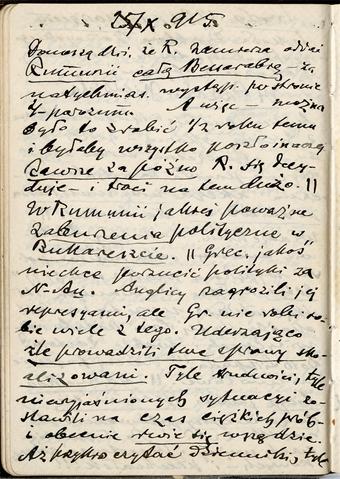 25/X 915.
Donoszą dzi. że R. zamierza oddać
Rumunii całą Bessarabię – za
natychmias. wystąp. po stronie
4-porozum. A więc – można
było to zrobić 1/2 roku temu
i byłoby wszystko poszło inaczej
zawsze za późno R. się decy-
duje – i traci na tem dużo. ||
W Rumunii jakieś poważne
zaburzenia polityczne w
Bukareszcie. || Grec. jakoś
nie chce porzucić polityki za
N-Au. Anglicy zagrozili jej
represyami, ale Gr. nie robi so-
bie wiele z tego. Uderzająco
źle prowadzili swe sprawy sko-
alizowani. Tyle trudności, tyle
niewyjaśnionych sytuacyi zo-
stawili na czas ciężkich prób –
i obecnie rwie się wszędzie.
Aż przykro czytać dzienniki, tyle